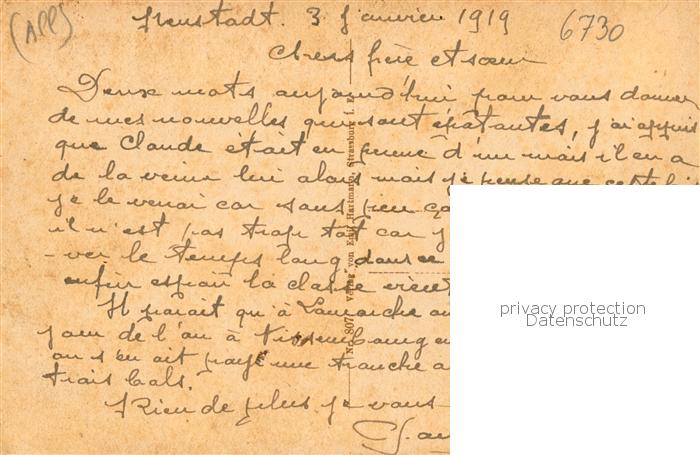 (APP)
Neustadt. 3 Janvier 1919
6730
Chers frère et sœur
Deux mots aujourd'hui pour vous donner
de mes nouvelles qui sont épatantes, j'ai appris
que Claude était en perme d'un mois il en a
de la veine lui alors mais je pense que cette fois
je le verai car sans rien ça
il n'est pas trop tôt car j
-ver le temps long dans ce
enfin espoir la classe vient
Il parait qu'à Lamarche au
jour de l'an à Vissembourg en
on s'en ait payé une tranche a
trois bals.
Rien de plus je vous
No. 8071 Verlag von Emil Hartmann, Strassburg i. E.
privacy protection
Datenschutz